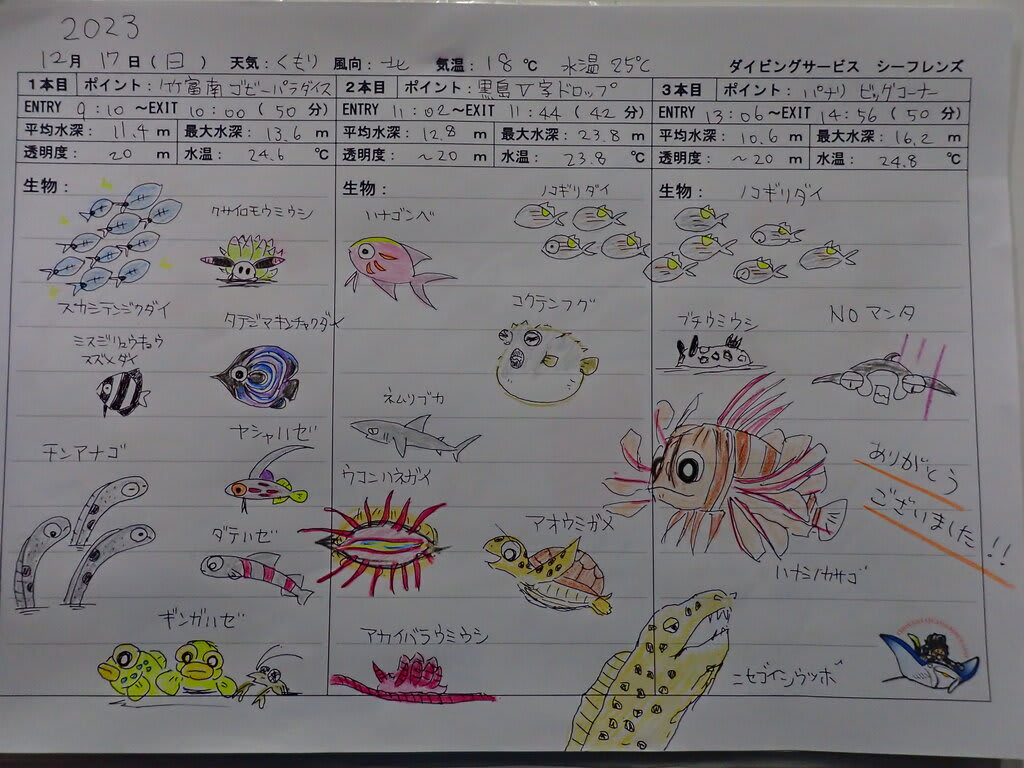 2023
12月 17日(日) 天気:くもり 風向:北 気温:18℃ 水温 25℃ ダイビングサービス シーフレンズ
1本目 ポイント:竹富南 ゴビーパラダイス
ENTRY 9:10~EXIT 10:00(50分)
平均水深: 11.4 m 最大水深: 13.6 m
透明度: 20 m 水温: 24.6 ℃
生物:
クサイロモウミウシ
スカシテンジクダイ
タテジマキンチャクダイ
ミスジリュウキュウ
スズメダイ
チンアナゴ
ヤシャハゼ
ダテハゼ
ギンガハゼ
2本目 ポイント:黒島V字ドロップ
ENTRY 11:02~EXIT 11:44(42分)
平均水深: 12.8 m 最大水深: 23.8 m
透明度: ~20 m 水温: 23.8 ℃
生物:
ノコギリダイ
ハナゴンベ
コクテンフグ
ネムリブカ
ウコンハネガイ
アオウミガメ
アカイバラウミウシ
3本目 ポイント:パナリ ビッグコーナー
ENTRY 13:06~EXIT 14:56(50分)
平均水深: 10.6 m 最大水深: 16.2 m
透明度: ~20 m 水温: 24.8 ℃
生物:
ノコギリダイ
ブチウミウシ
NOマンタ
ありがとう
ございました!!
ハナミノカサゴ
ニセゴイシウツボ